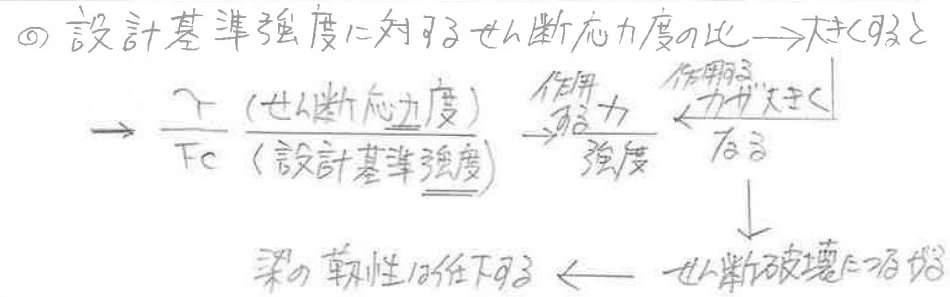 ◎ 設計基準強度に対するせん断応力度の比 → 大きくすると
→ τ/Fc (せん断応力度)/(設計基準強度) → 作用する力/強度 ← 作用する力が大きくなる
↓
梁の靭性は低下する ← せん断破壊につながる